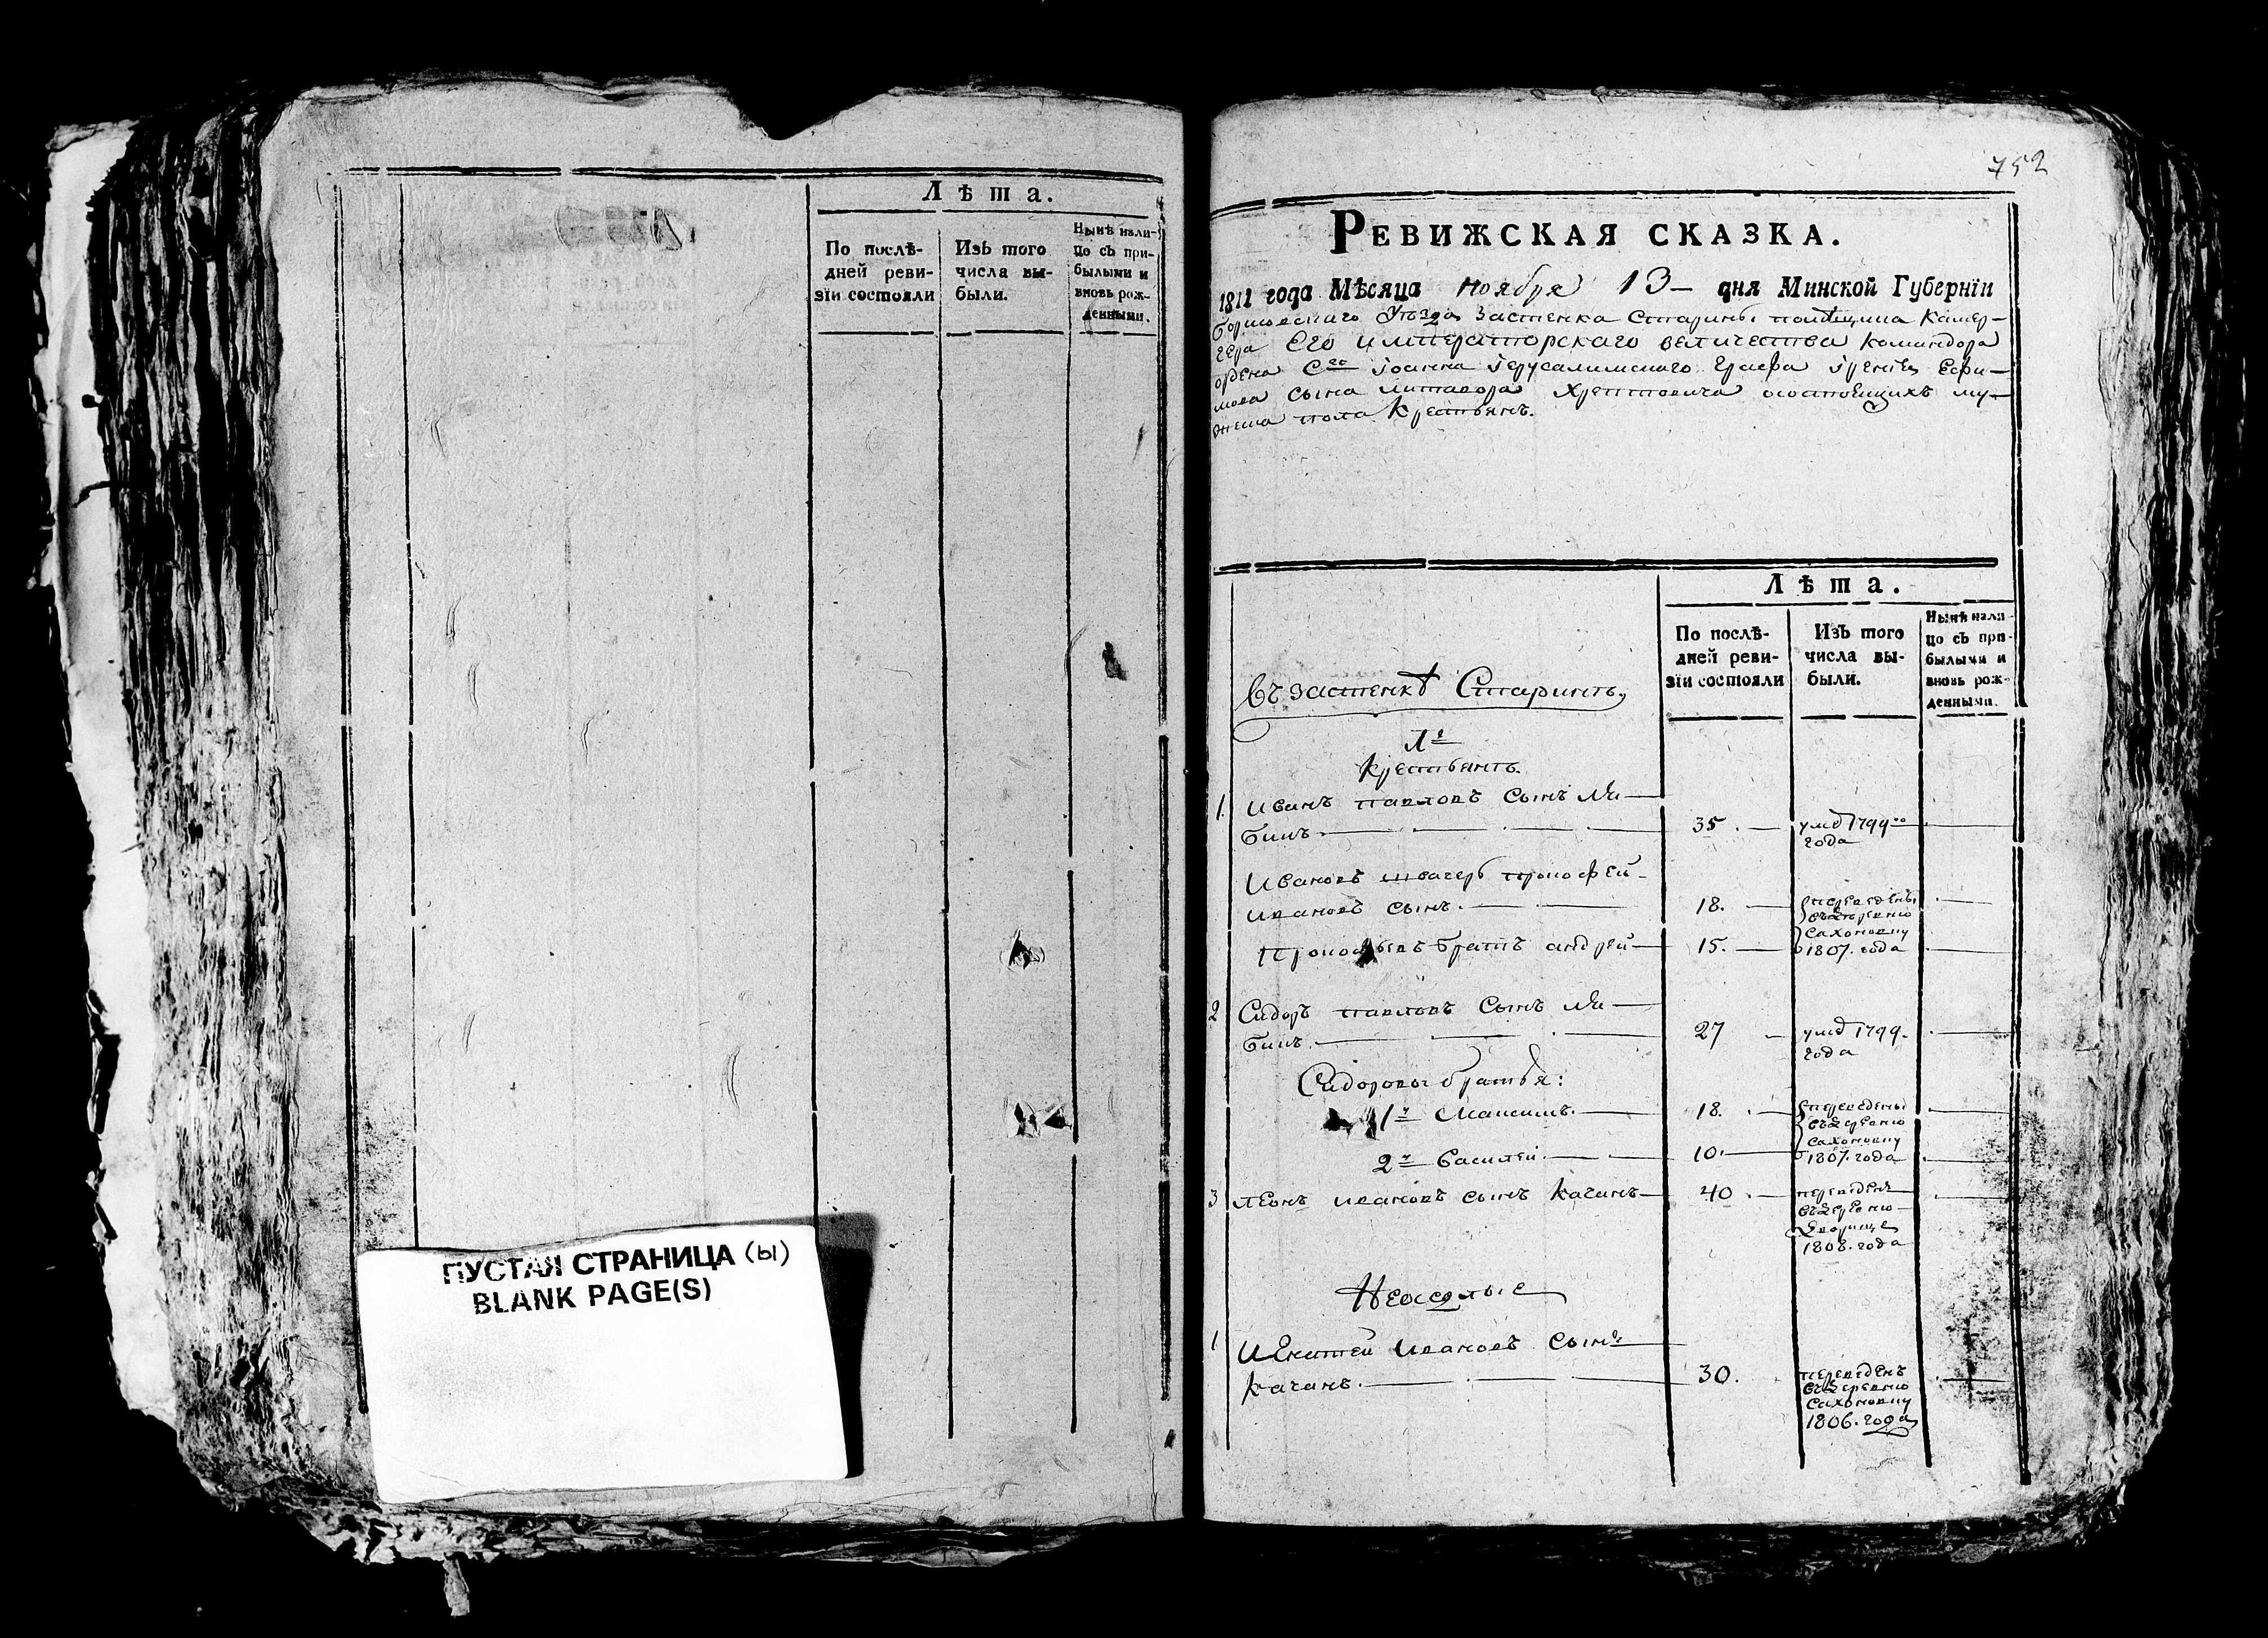 Лѣта.
По послѣ-
дней реви-
зїи состояли
Изъ того
числа вы-
были.
Нынѣ нали-
цо съ при-
былыми и
вновь рож-
денными.
ПУСТАЯ СТРАНИЦА (ы)
BLANK PAGE(S)
752
РЕВИЖСКАЯ СКАЗКА.
1811 года Мѣсяца ноября 13 дня Минской Губернїи
Борисовскаго Уѣзда Застенка Старины помѣщика Камер-
гера Его императорскаго величества командора
ордена Сго Iоанна Iерусалимскаго Графа Iренея Ефи-
мова сына литавора Хрептовича состоящихъ му-
жеска пола Крестьянъ.
Лѣта.
По послѣ-
дней реви-
зїи состояли
Изъ того
числа вы-
были.
Нынѣ нали-
цо съ при-
былыми и
вновь рож-
денными.
Въ застенкѣ Старинѣ
Крестьянъ.
1. Иванъ павловъ сынъ
35. умѣ 1799го
года
Ивановъ швагеръ прокофей
ивановъ сынъ. 18. переведены
въ деревню
Сахоновку
Прокофьевъ братъ андрей 15. 1807. года
2 Сидоръ павловъ Сынъ
27 умѣ 1799.
года
Сидоровы братья:
1й Максимъ. 18. переведены
въ деревню
Сахоновку
2й Василей. 10. 1807. года
3 Леонъ ивановъ сынъ Качанъ 40. переведенъ
въ деревню
Дворище
1808. года
Неоседлые
1 ивановъ сынъ
Качанъ. 30. переведенъ
въ деревню
Сахоновку
1806. года